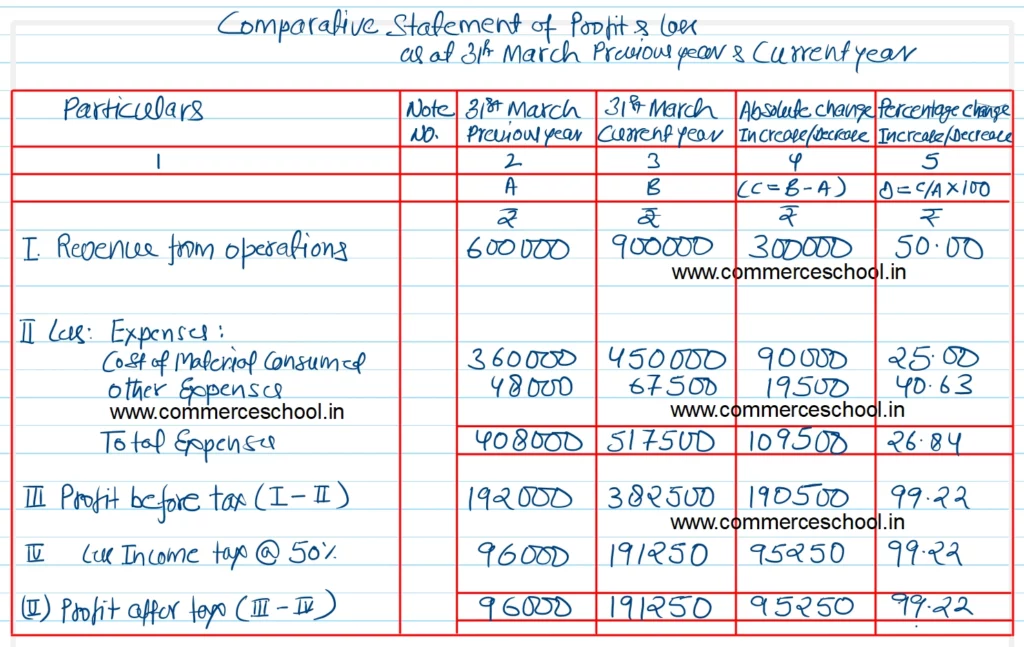 Comparative Statement of Profit & loss
as at 31st March Previous year & Current year
Particulars Note No. 31st March Previous year 31st March Current year Absolute change Increase/Decrease Percentage change Increase/Decrease
1 2 3 4 5
A B (C=B-A) D=C/A×100
₹ ₹ ₹ ₹
I. Revenue from operations 600000 900000 300000 50.00
www.commerceschool.in
II Less: Expenses:
Cost of Material Consumed 360000 450000 90000 25.00
other Expenses 48000 67500 19500 40.63
www.commerceschool.in www.commerceschool.in
Total Expenses 408000 517500 109500 26.84
III Profit before tax (I-II) 192000 382500 190500 99.22
www.commerceschool.in
IV Less Income tax @ 50% 96000 191250 95250 99.22
(II) Profit after tax (III-IV) 96000 191250 95250 99.22